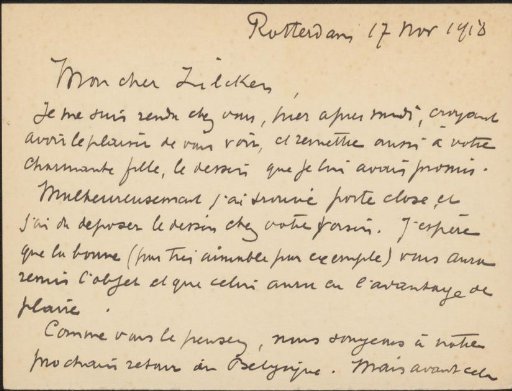 Rotterdam 17 Nov 1918
Mon cher Zilcken,
Je me suis rendu chez vous, hier après midi, croyant
avoir le plaisir de vous voir, et remettre aussi à votre
charmante fille, le dessin que je lui avais promis.
Malheureusement j'ai trouvé porte close, et
j'ai du deposer le dessin chez votre voisin. J'espère
que la bonne (pas très aimable par exemple) vous aura
remis l'objet et que celui aura eu l'avantage de
plaire.
Comme vous le pensez, nous songeons à notre
prochain retour en Belgique. Mais avant cela